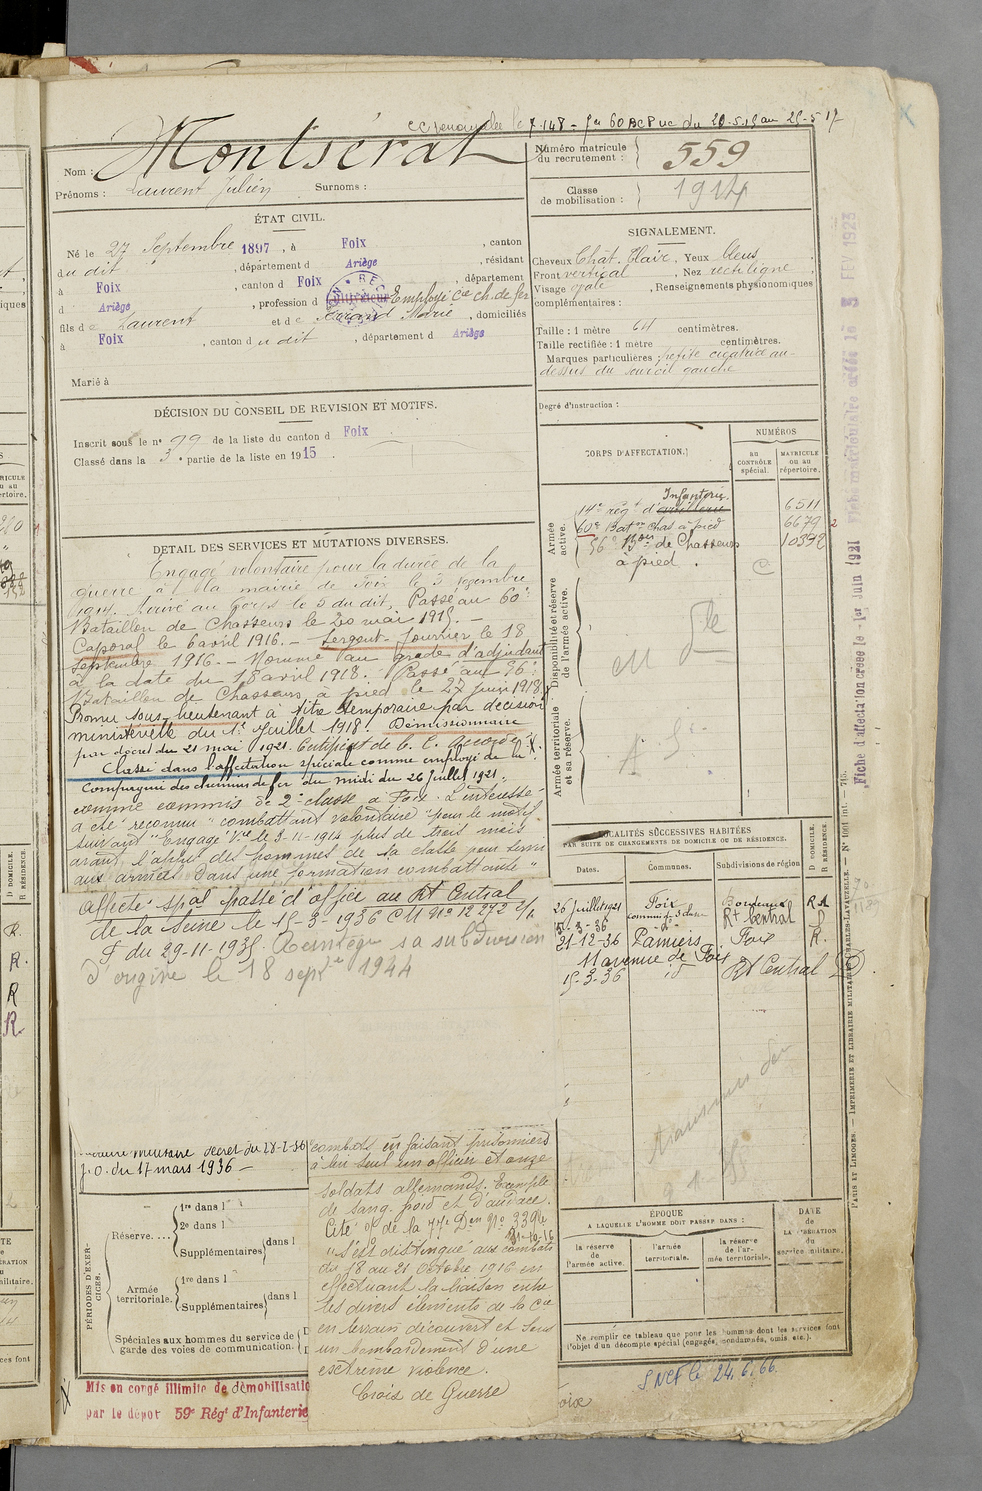 7.148 - 60 BCP du 20.5.15 au 25-5 17
Nom : Montsérat
Prénoms : Laurent Julien Surnoms :
Numéro matricule du recrutement : 559
Classe de mobilisation : 1914
ÉTAT CIVIL.
Né le 27 Septembre 1897, à Foix, canton
du dit, département d Ariège, résidant
à Foix, canton d Foix, département
d Ariège, profession d Employé Cie ch. de fer
fils de Laurent et de Marie, domiciliés
à Foix, canton du dit, département d Ariège
Marié à
SIGNALEMENT.
Cheveux Chât. Clair, Yeux bleus
Front vertical, Nez rectiligne
Visage ovale, Renseignements physionomiques
complémentaires :
Taille : 1 mètre 64 centimètres.
Taille rectifiée : 1 mètre centimètres.
Marques particulières : petite cicatrice au-
dessus du sourcil gauche
Degré d'instruction :
DÉCISION DU CONSEIL DE REVISION ET MOTIFS.
Inscrit sous le n° 99 de la liste du canton d Foix
Classé dans la 3e partie de la liste en 1915.
CORPS D'AFFECTATION.
NUMÉROS
au CONTRÔLE spécial.
MATRICULE ou au répertoire.
Armée active.
Infanterie
14e rég t d'artillerie 6511
60e Bat on chas à pied 6679
56e Bon de Chasseurs 10392
à pied.
Disponibilité et réserve de l'armée active.
Armée territoriale et sa réserve.
DETAIL DES SERVICES ET MUTATIONS DIVERSES.
Engagé volontaire pour la durée de la
guerre à la mairie de Foix le 3 novembre
1914. Arrivé au Corps le 5 du dit, Passé au 60e
Bataillon de Chasseurs le 20 mai 1915. -
Caporal le 6 avril 1916. - Sergent-fourrier le 18
Septembre 1916. - Nommé au grade d'adjudant
à la date du 18 avril 1918. Passé au 56e
Bataillon de Chasseurs à pied le 27 Juin 1918.
Promu sous-lieutenant à titre temporaire par décision
ministérielle du 1er Juillet 1918. Démissionnaire
par décret du 21 mai 1921. Certificat de B. C. accordé.
Classé dans l'affectation spéciale comme employé de la
Compagnie des chemins de fer du midi du 26 Juillet 1921.
comme commis de 2e classe à Foix. L'intéressé
a été reconnu "combattant volontaire" pour le motif
suivant "Engagé Vre le 3-11-1914 plus de trois mois
avant l'appel des hommes de sa classe pour servir
aux armées dans une formation combattante"
Affecté spal passé d'office au Rt Central
de la Seine le 15-3-1936 CM N° 12272 2/1
F du 29-11-1935. Réintègre sa subdivision
d'origine le 18 septbre 1944
LOCALITÉS SUCCESSIVES HABITÉES
PAR SUITE DE CHANGEMENTS DE DOMICILE OU DE RÉSIDENCE.
Dates. Communes. Subdivisions de région D DOMICILE. R RÉSIDENCE
26 Juillet 1921 Foix Bordeaux R
15-3-36 Rt Central
21-12-36 Pamiers Foix R.
11 avenue de Foix
15-3-36 id Rt Central D
militaire décret du 28-2-36
J. O. du 17 mars 1936 -
combats en faisant prisonniers
à lui seul un officier et onze
soldats allemands. Exemple
de sang-froid et d'audace.
Cité O/ de la 77e Don N° 339
31-10-16
"S'est distingué aux combats
du 18 au 21 Octobre 1916 en
effectuant la liaison entre
les divers éléments de la Cie
en terrain découvert et sous
un bombardement d'une
extrême violence.
Croix de Guerre
PÉRIODES D'EXERCICES.
Réserve.... 1re dans l
2e dans l
Supplémentaires dans l
Armée territoriale. 1re dans l
Supplémentaires dans l
Spéciales aux hommes du service de
garde des voies de communication.
ÉPOQUE
A LAQUELLE L'HOMME DOIT PASSER DANS :
la réserve de l'armée active.
l'armée territoriale.
la réserve de l'armée territoriale.
DATE de la LIBÉRATION du service militaire.
Ne remplir ce tableau que pour les hommes dont les services font
l'objet d'un décompte spécial (engagés, condamnés, omis, etc.).
Mis en congé illimité de démobilisatio
par le dépôt 59e Régt d'Infanterie
SNCF le 24.6.66.
Fiche d'affectation créée le 1er Juin 1921
Fiche matriculaire créée le 3 FEV 1923
PARIS ET LIMOGES. — IMPRIMERIE ET LIBRAIRIE MILITAIRE CHARLES-LAVAUZELLE.